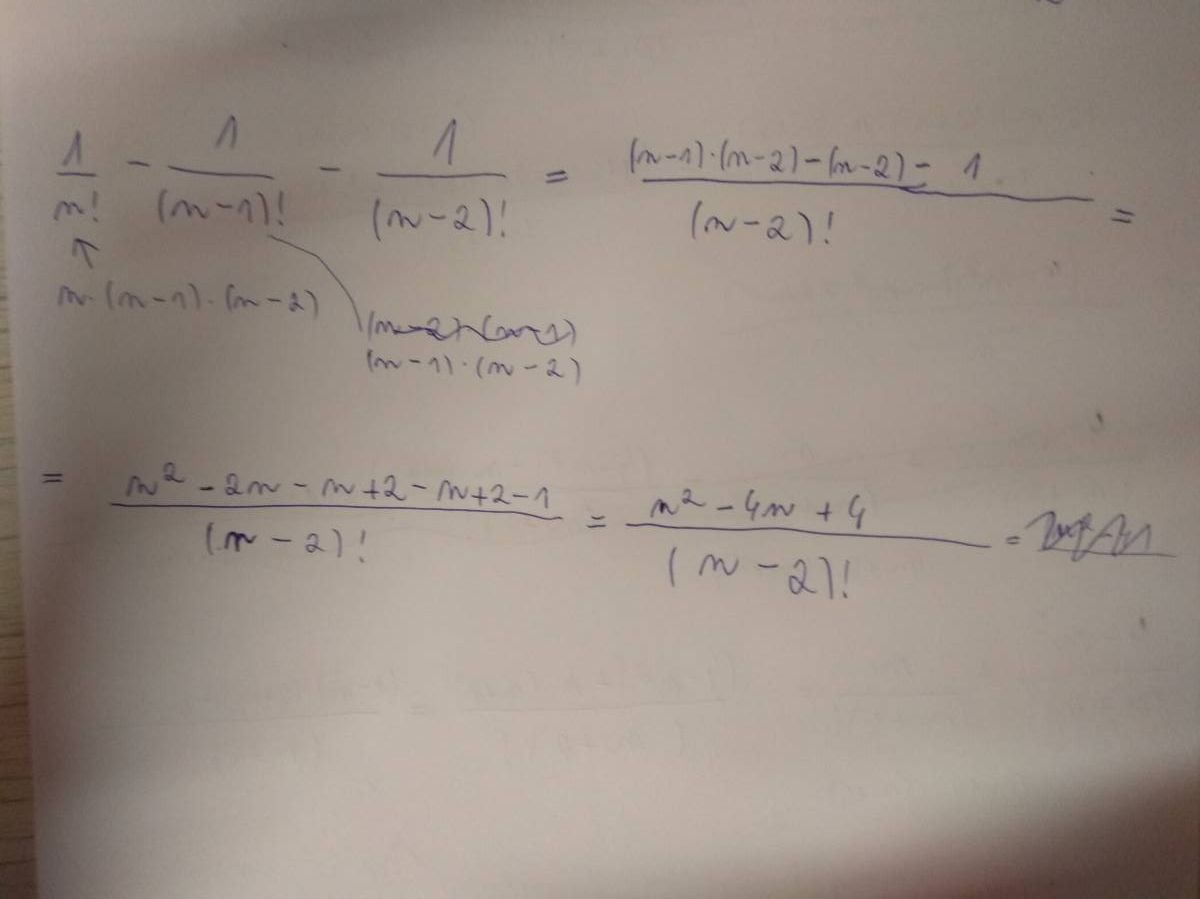 1/n! - 1/(n-1)! - 1/(n-2)! = ((n-1)·(n-2)-(n-2)-1)/(n-2)! =
↑
n·(n-1)·(n-2)
(n-2)·(n-1)
(n-1)·(n-2)
= (n²-2n-n+2-n+2-1)/(n-2)! = (n²-4n+4)/(n-2)! =